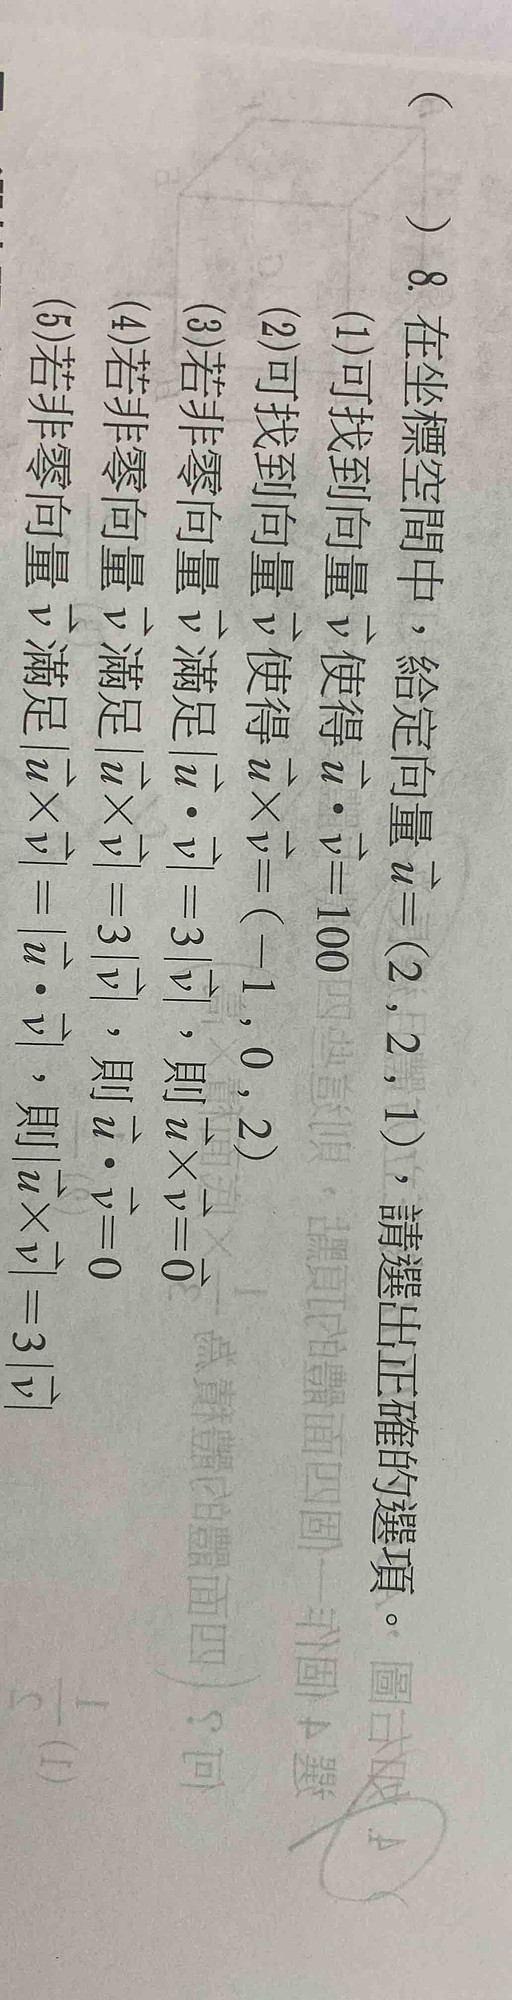 (　　) 8. 在坐標空間中，給定向量 u⃗=(2，2，1)，請選出正確的選項。
(1)可找到向量 v⃗ 使得 u⃗•v⃗=100
(2)可找到向量 v⃗ 使得 u⃗×v⃗=(－1，0，2)
(3)若非零向量 v⃗ 滿足|u⃗•v⃗|=3|v⃗|，則 u⃗×v⃗=0⃗
(4)若非零向量 v⃗ 滿足|u⃗×v⃗|=3|v⃗|，則 u⃗•v⃗=0
(5)若非零向量 v⃗ 滿足|u⃗×v⃗|=|u⃗•v⃗|，則|u⃗×v⃗|=3|v⃗|